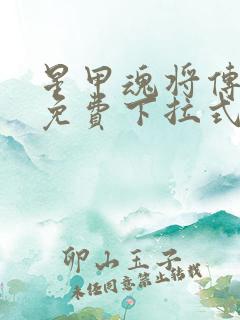 星甲魂将傳
免費下拉式
卯山玉子
未经同意禁止转载